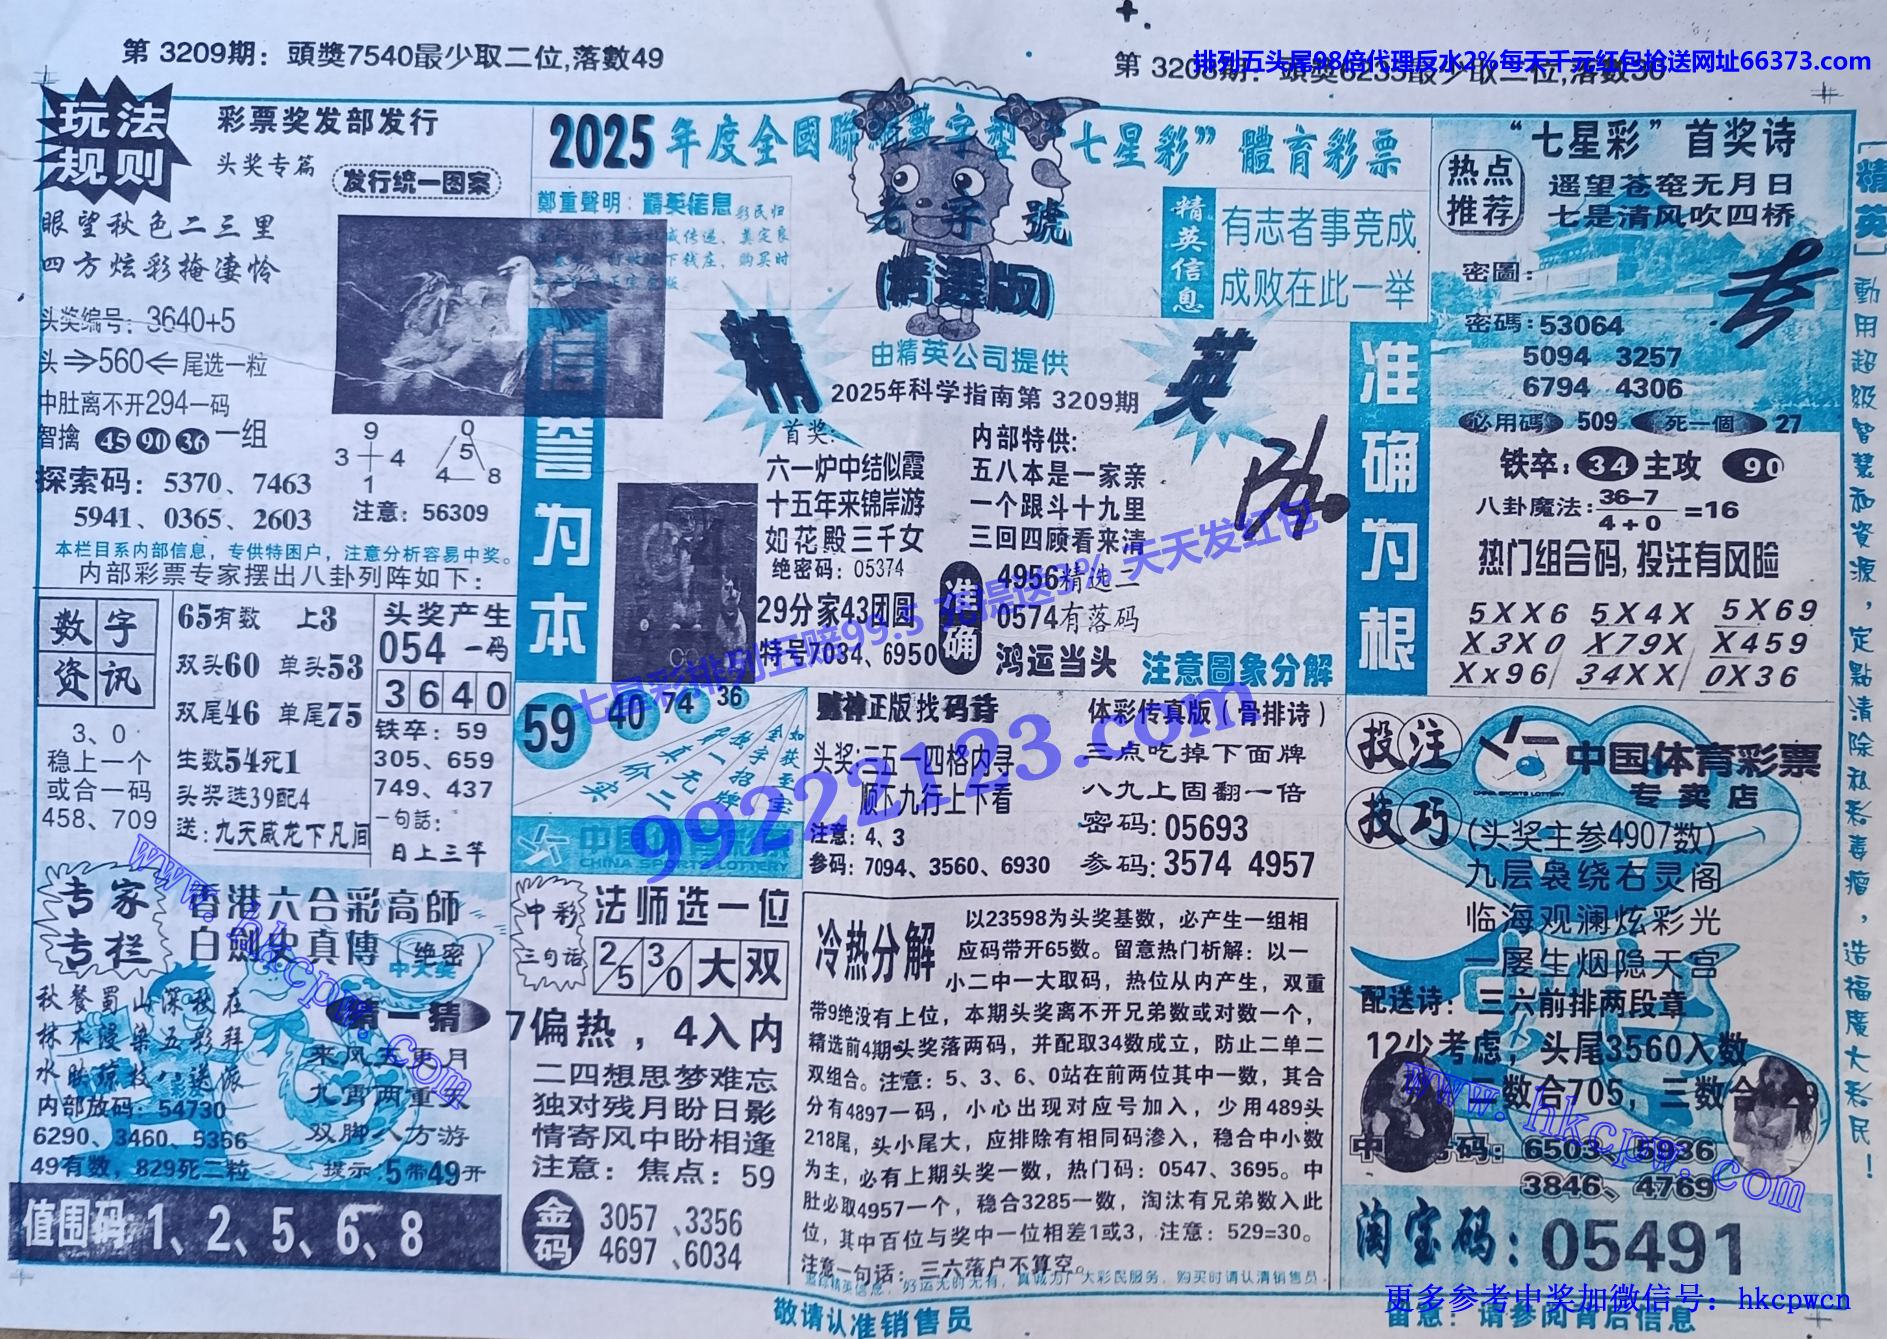 第 3209期：頭獎7540最少取二位,落數49
排列五头尾98倍代理反水2%每天千元红包抢送网址66373.com
玩法
规则
彩票奖发部发行
头奖专篇
发行统一图案
眼望秋色二三里
四方炫彩掩凄怜
头奖编号：3640+5
头⇒560⇐尾选一粒
中肚离不开294一码
智擒 45 90 36 一组
9
3 4
1
0
5
4 8
探索码：5370、7463
5941、0365、2603
注意：56309
本栏目系内部信息，专供特困户，注意分析容易中奖。
内部彩票专家摆出八卦列阵如下：
数字
资讯
3、0
稳上一个
或合一码
458、709
65有数 上3
双头60 单头53
双尾46 单尾75
生数54死1
头奖选39配4
送：九天威龙下凡间
头奖产生
054 一码
3640
铁卒：59
305、659
749、437
一句話：
日上三竿
专家
专栏
香港六合彩高師
白劍史真傳（绝密）
中大奖
秋餐蜀山深秋庄
林木浸染五彩拜
水映琼枝八送派
内部放码：54730
6290、3460、5356
49有数，829死二粒
猜一猜
来风五更月
九霄两重天
双脚八方游
提示：5带49开
值围码：1、2、5、6、8
2025年度全國聯 數字型“七星彩”體育彩票
鄭重聲明：精英信息
老字號
(精選版)
精英信息
有志者事竞成
成败在此一举
精 英
由精英公司提供
2025年科学指南第 3209期
信誉为本
准确为根
首奖:
六一炉中结似霞
十五年来锦岸游
如花殿三千女
绝密码：05374
29分家43团圆
特号7034、6950
内部特供:
五八本是一家亲
一个跟斗十九里
三回四顾看来清
准确
4956精选二
0574有落码
鸿运当头
注意圖象分解
七星彩排列五赔99.5 充提送3% 天天发红包
59 40 74 36
如获至宝
金字招牌
独一无二
真价实
中国体育彩票
CHINA SPORTS LOTTERY
99222123.com
财神正版找码诗
头奖:二五一四格内寻
顺不九行上下看
注意：4、3
参码：7094、3560、6930
体彩传真版（骨排诗）
三点吃掉下面牌
八九上固翻一倍
密码：05693
参码：3574 4957
中彩
三句话
法师选一位
2/5 3/0 大 双
7偏热，4入内
二四想思梦难忘
独对残月盼日影
情寄风中盼相逢
注意：焦点：59
金码
3057、3356
4697、6034
冷热分解
以23598为头奖基数，必产生一组相
应码带开65数。留意热门析解：以一
小二中一大取码，热位从内产生，双重
带9绝没有上位，本期头奖离不开兄弟数或对数一个，
精选前4期头奖落两码，并配取34数成立，防止二单二
双组合。注意：5、3、6、0站在前两位其中一数，其合
分有4897一码，小心出现对应号加入，少用489头
218尾，头小尾大，应排除有相同码渗入，稳合中小数
为主，必有上期头奖一数，热门码：0547、3695。中
肚必取4957一个，稳合3285一数，淘汰有兄弟数入此
位，其中百位与奖中一位相差1或3，注意：529=30。
注意一句话：三六落户不算空。
敬请认准销售员
“七星彩”首奖诗
热点
推荐
遥望苍穹无月日
七是清风吹四桥
密圖：
密碼：53064
5094 3257
6794 4306
必用碼 509 死一個 27
铁卒：34 主攻 90
八卦魔法：36-7/4+0=16
热门组合码,投注有风险
5XX6 5X4X 5X69
X3X0 X79X X459
Xx96 34XX 0X36
投注
技巧
中国体育彩票
CHINA SPORTS LOTTERY
专卖店
(头奖主参4907数)
九层袅绕右灵阁
临海观澜炫彩光
一屡生烟隐天宫
配送诗：三六前排两段章
12少考虑，头尾3560入数
数合705，三数合
6503、5936
3846、4769
淘宝码：05491
[精英]動用超级智慧和资源，定點清除私彩毒瘤，造福廣大彩民！
www.hkcpw.com
www.hkcpw.com
更多参考中奖加微信号：hkcpwcn
留意：请参阅背后信息